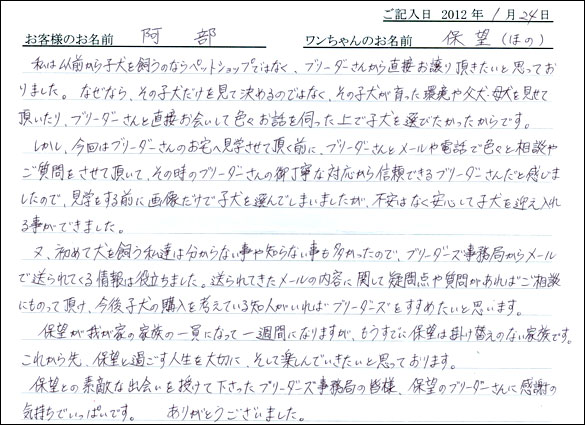 ご記入日 2012 年 1 月 24 日
お客様のお名前 阿部 ワンちゃんのお名前 保望(ほの)
私は以前から子犬を飼うのならペットショップではなく、ブリーダーさんから直接お譲り頂きたいと思ってお
りました。なぜなら、その子犬だけを見て決めるのではなく、その子犬が育った環境や父犬・母犬を見せて
頂いたり、ブリーダーさんと直接お会いして色々お話を伺った上で子犬を選びたかったからです。
しかし、今回はブリーダーさんのお宅へ見学させて頂く前に、ブリーダーさんとメールや電話で色々と相談や
ご質問をさせて頂いて、その時のブリーダーさんの御丁寧な対応から信頼できるブリーダーさんだと感じま
したので、見学をする前に画像だけで子犬を選んでしまいましたが、不安はなく安心して子犬を迎え入れ
る事ができました。
又、初めて犬を飼う私達は分からない事や知らない事も多かったので、ブリーダーズ事務局からメール
で送られてくる情報は役立ちました。送られてきたメールの内容に関して疑問点や質問があればご相談
にものって頂け、今後子犬の購入を考えている知人がいればブリーダーズをすすめたいと思います。
保望が我が家の家族の一員になって一週間になりますが、もうすでに保望は掛け替えのない家族です。
これから先、保望と過ごす人生を大切に、そして楽しんでいきたいと思っております。
保望との素敵な出会いを授けて下さったブリーダーズ事務局の皆様、保望のブリーダーさんに感謝の
気持ちでいっぱいです。 ありがとうございました。